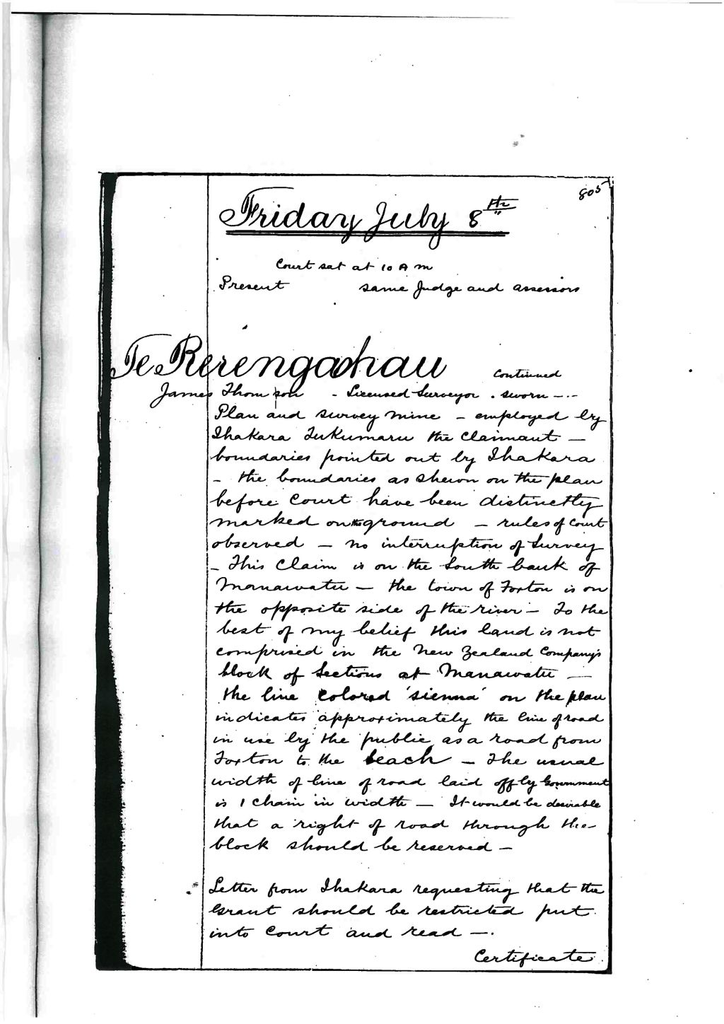 805
Friday July 8th
Court sat at 10 A m
Present same Judge and assessors
Te Rerengaohau continued
James Thompson - Licensed Surveyor . sworn -.-
Plan and survey mine - employed by
Ihakara Tukumaru the Claimant -
boundaries pointed out by Ihakara
- the boundaries as shewn on the plan
before Court have been distinctly
marked on the ground - rules of Court
observed - no interruption of Survey
- This Claim is on the South bank of
Manawatu - the town of Foxton is on
the opposite side of the river - To the
best of my belief this land is not
comprised in the New Zealand Company's
block of Sections at Manawatu -
the line colored 'sienna' on the plan
indicates approximately the line of road
in use by the public as a road from
Foxton to the beach - The usual
width of line of road laid off by Government
is 1 chain in width - It would be desirable
that a right of road through the
block should be reserved -
Letter from Ihakara requesting that the
Grant should be restricted put
into Court and read -.
Certificate